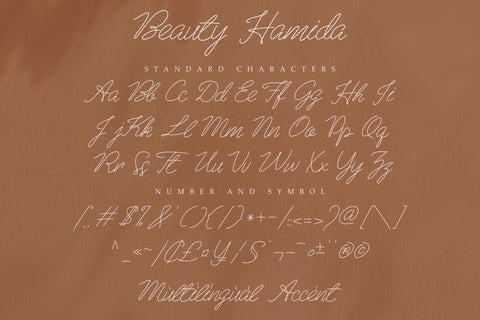 Beauty Hamida
STANDARD CHARACTERS
Aa Bb Cc Dd Ee Ff Gg Hh Ii
Jj Kk Ll Mm Nn Oo Pp Qq
Rr Ss Tt Uu Vv Ww Xx Yy Zz
NUMBER AND SYMBOL
!"#$%&'()(/)*+-/:;<=>?@[\]
^_«~|¢£¤¥¦§¨¬¯°±´®©
Multilingual Accent